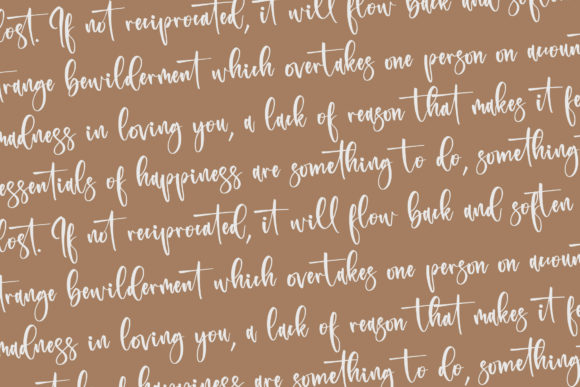 lost. If not reciprocated, it will flow back and soften
strange bewilderment which overtakes one person on accoun
madness in loving you, a lack of reason that makes it fe
essentials of happiness are something to do, something
lost. If not reciprocated, it will flow back and soften
strange bewilderment which overtakes one person on accoun
madness in loving you, a lack of reason that makes it fe
of happiness are something to do, something